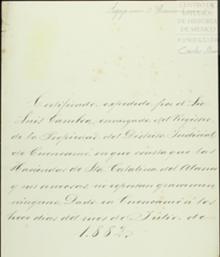 CENTRO DE
ESTUDIOS
DE HISTORIA
DE MEXICO
Certificado expedido por el Sr.
Luis Gamboa, encargado del Registro
de la Propiedad del Distrito Judicial
de Cuencamé, en que consta que las
Haciendas de Sta. Catalina del Alamo
y sus anexas, no reportan gravamen
ninguno. Dado en Cuencamé á los
doce días del mes de Julio de
1882.